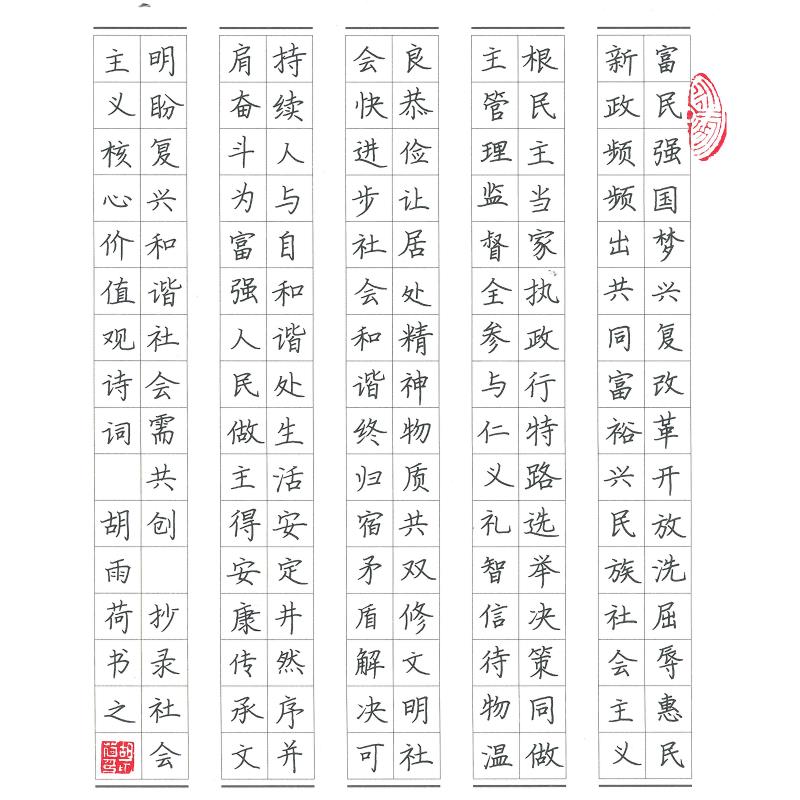 富民强国梦兴复改革开放洗屈辱惠民
新政频频出共同富裕兴民族社会主义
根民主当家执政行特路选举决策同做
主管理监督全参与仁义礼智信待物温
良恭俭让居处精神物质共双修文明社
会快进步社会和谐终归宿矛盾解决可
持续人与自和谐处生活安定井然序并
肩奋斗为富强人民做主得安康传承文
明盼复兴和谐社会需共创 抄录社会
主义核心价值观诗词 胡雨荷书之